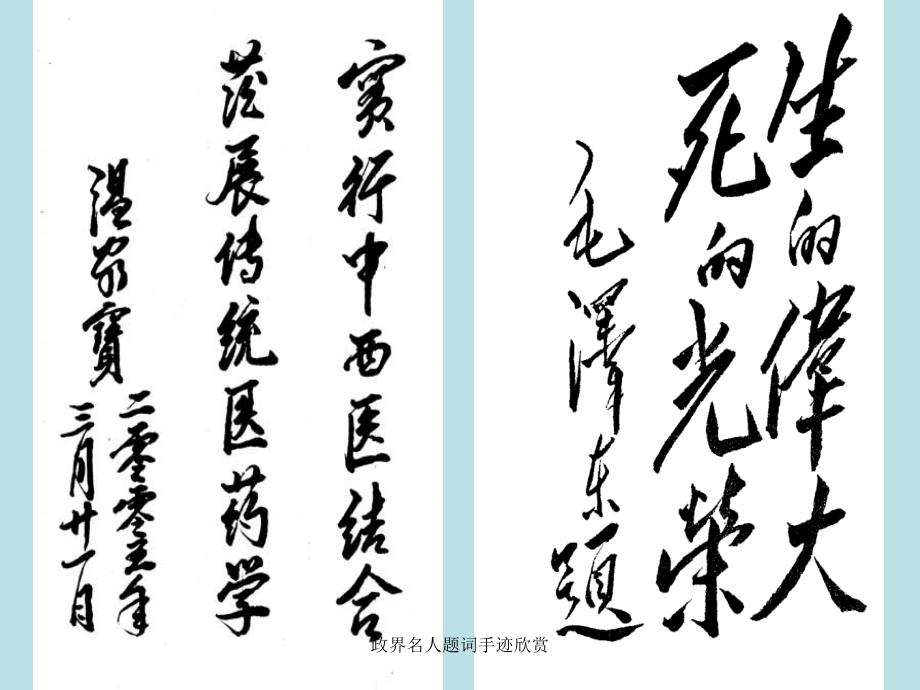 實行中西医结合
發展传统医药学
温家寶
二零零五年
三月廿一日
生的偉大
死的光榮
毛澤东題
政界名人题词手迹欣赏